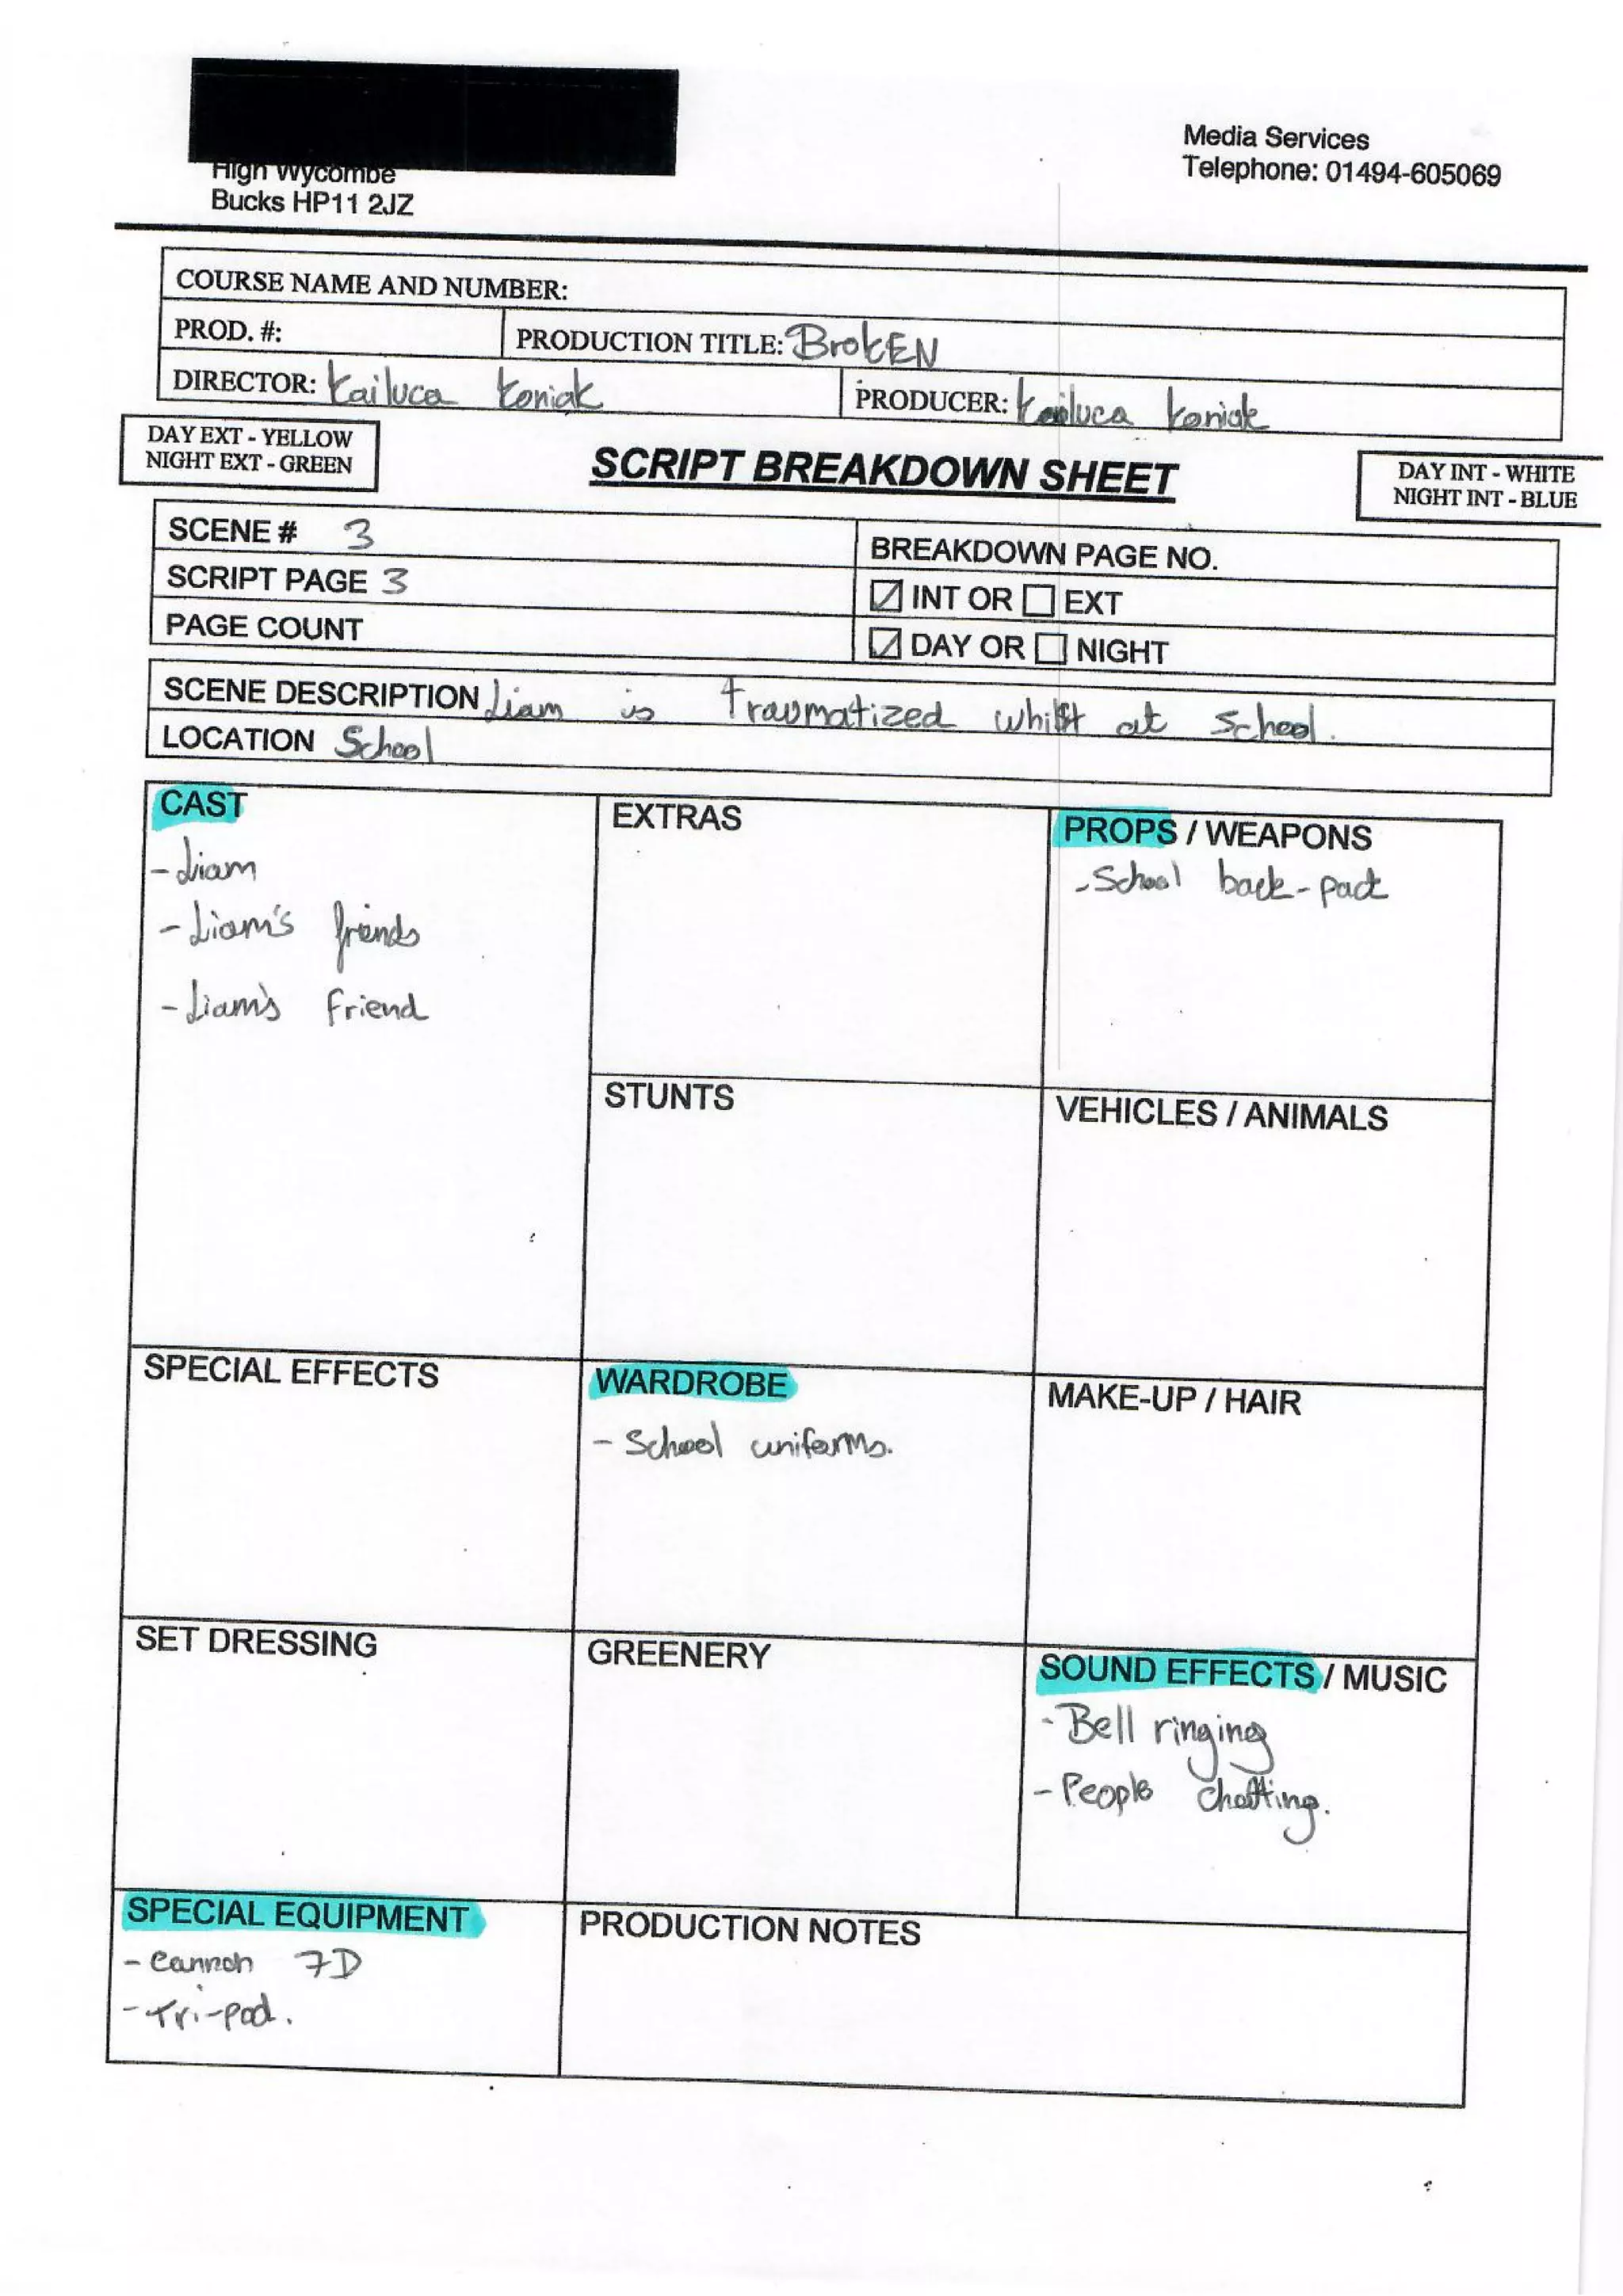 High Wycombe
Bucks HP11 2JZ
Media Services
Telephone: 01494-605069
COURSE NAME AND NUMBER:
PROD. #:
PRODUCTION TITLE: BrokEN
DIRECTOR: Kailuca Koniak
PRODUCER: Kailuca Koniak
DAY EXT - YELLOW
NIGHT EXT - GREEN
SCRIPT BREAKDOWN SHEET
DAY INT - WHITE
NIGHT INT - BLUE
SCENE # 3
SCRIPT PAGE 3
PAGE COUNT
BREAKDOWN PAGE NO.
INT OR EXT
DAY OR NIGHT
SCENE DESCRIPTION Liam is Traumatized whilst at School.
LOCATION School
CAST
- Liam
- Liam's friends
- Liam's Friend
EXTRAS
PROPS / WEAPONS
- School back-pack
STUNTS
VEHICLES / ANIMALS
SPECIAL EFFECTS
WARDROBE
- School uniforms.
MAKE-UP / HAIR
SET DRESSING
GREENERY
SOUND EFFECTS / MUSIC
- Bell ringing
- People chatting.
SPECIAL EQUIPMENT
- Cannon 7D
- Tri-pod.
PRODUCTION NOTES